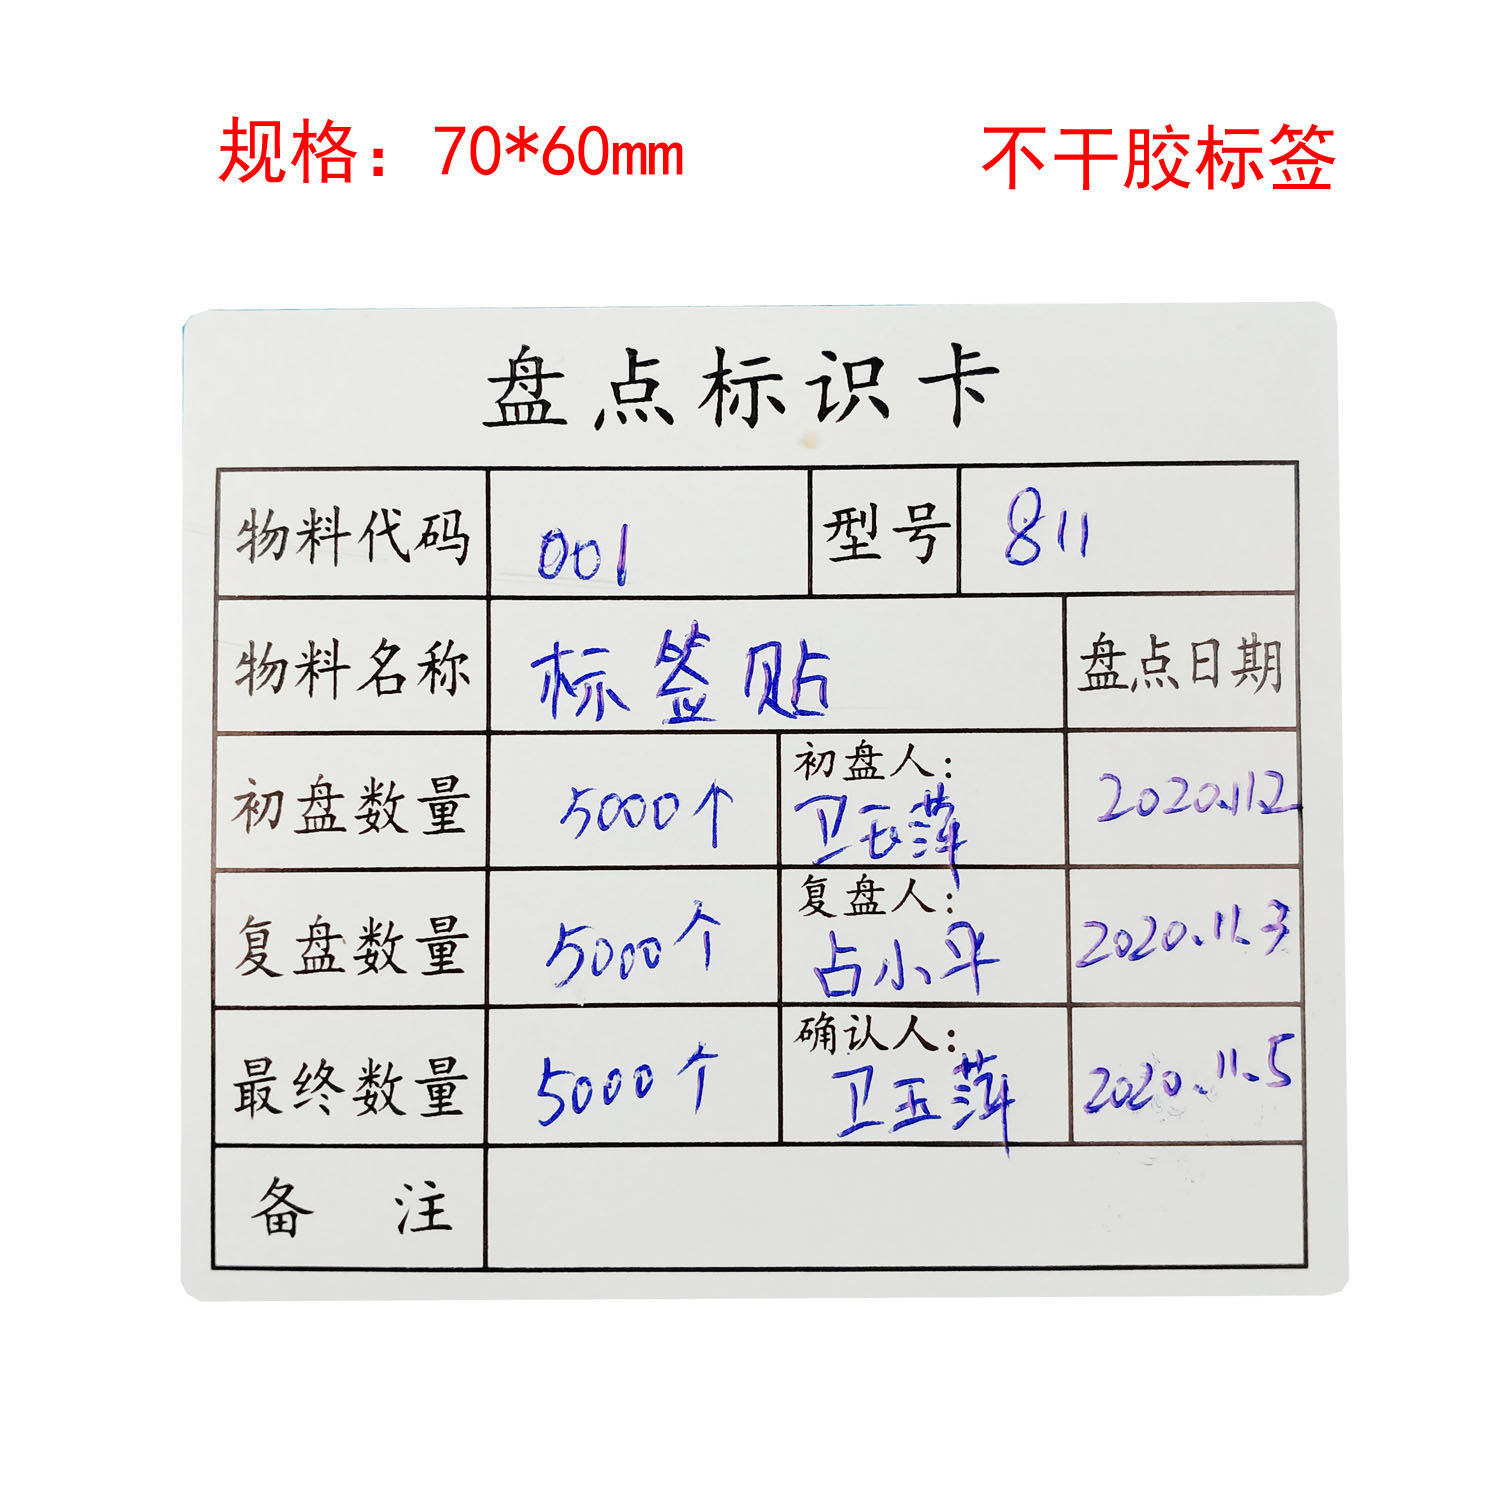 规格：70*60mm 不干胶标签
盘点标识卡
物料代码 001 型号 811
物料名称 标签贴 盘点日期
初盘数量 5000个 初盘人： 卫玉萍 2020.11.2
复盘数量 5000个 复盘人： 占小平 2020.11.3
最终数量 5000个 确认人： 卫玉萍 2020.11.5
备注